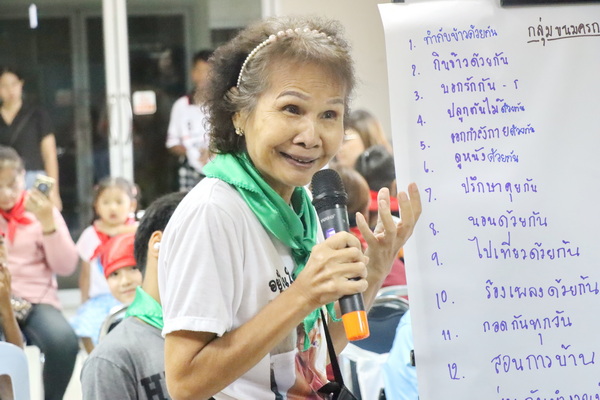 กลุ่ม ขนมครก
1. ทำกับข้าวด้วยกัน
2. กินข้าวด้วยกัน
3. บอกรักกัน - ร
4. ปลูกต้นไม้ด้วยกัน
5. ออกกำลังกายด้วยกัน
6. ดูหนังด้วยกัน
7. ปรึกษาคุยกัน
8. นอนด้วยกัน
9. ไปเที่ยวด้วยกัน
10. ร้องเพลงด้วยกัน
11. กอดกันทุกวัน
12. สอนการบ้าน